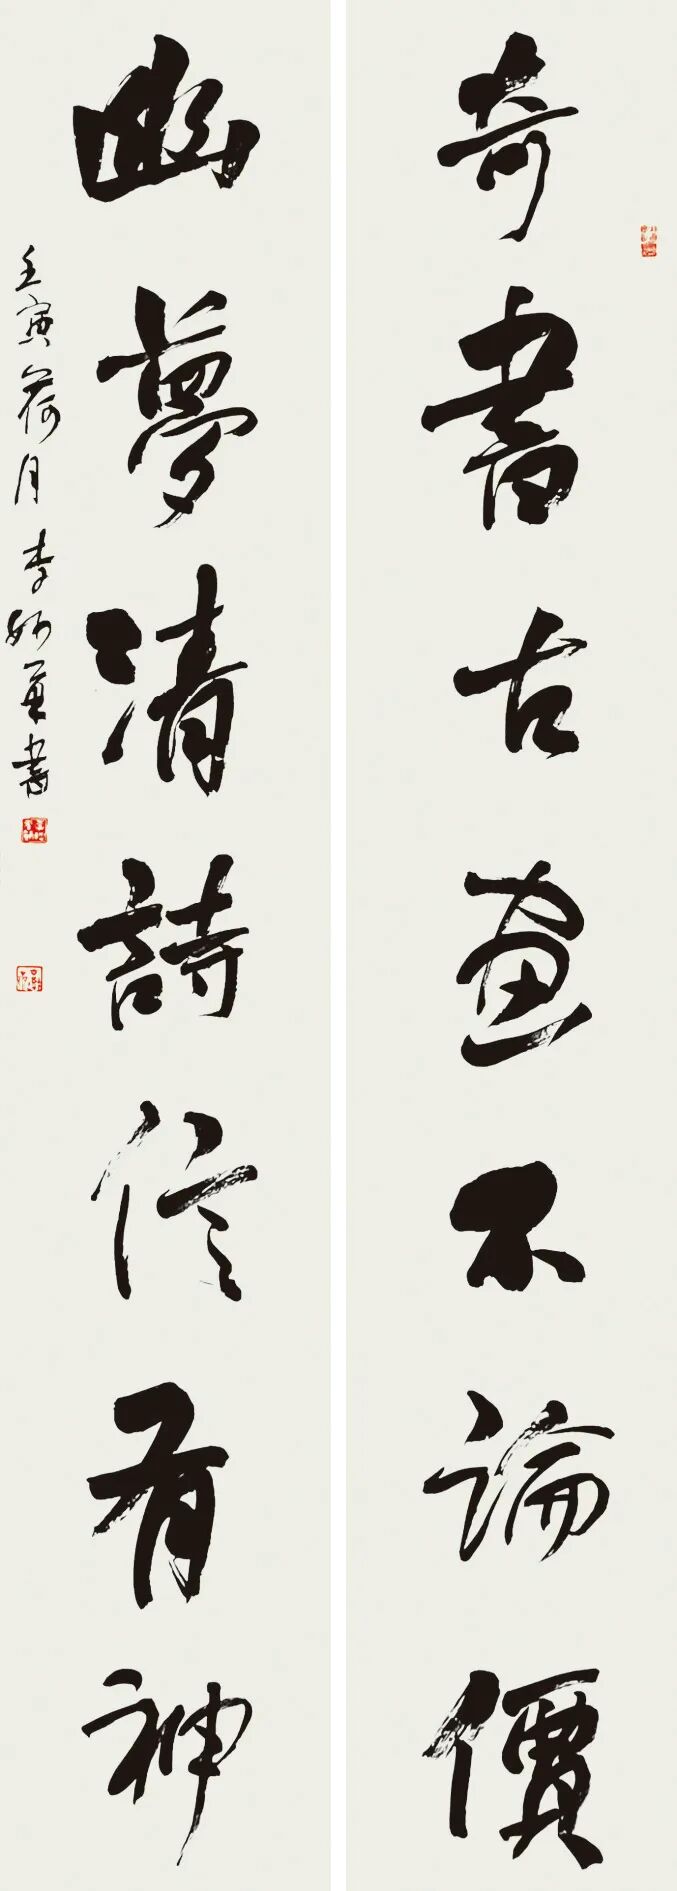 奇書古畫不論價
幽夢清詩信有神
壬寅荷月李
書